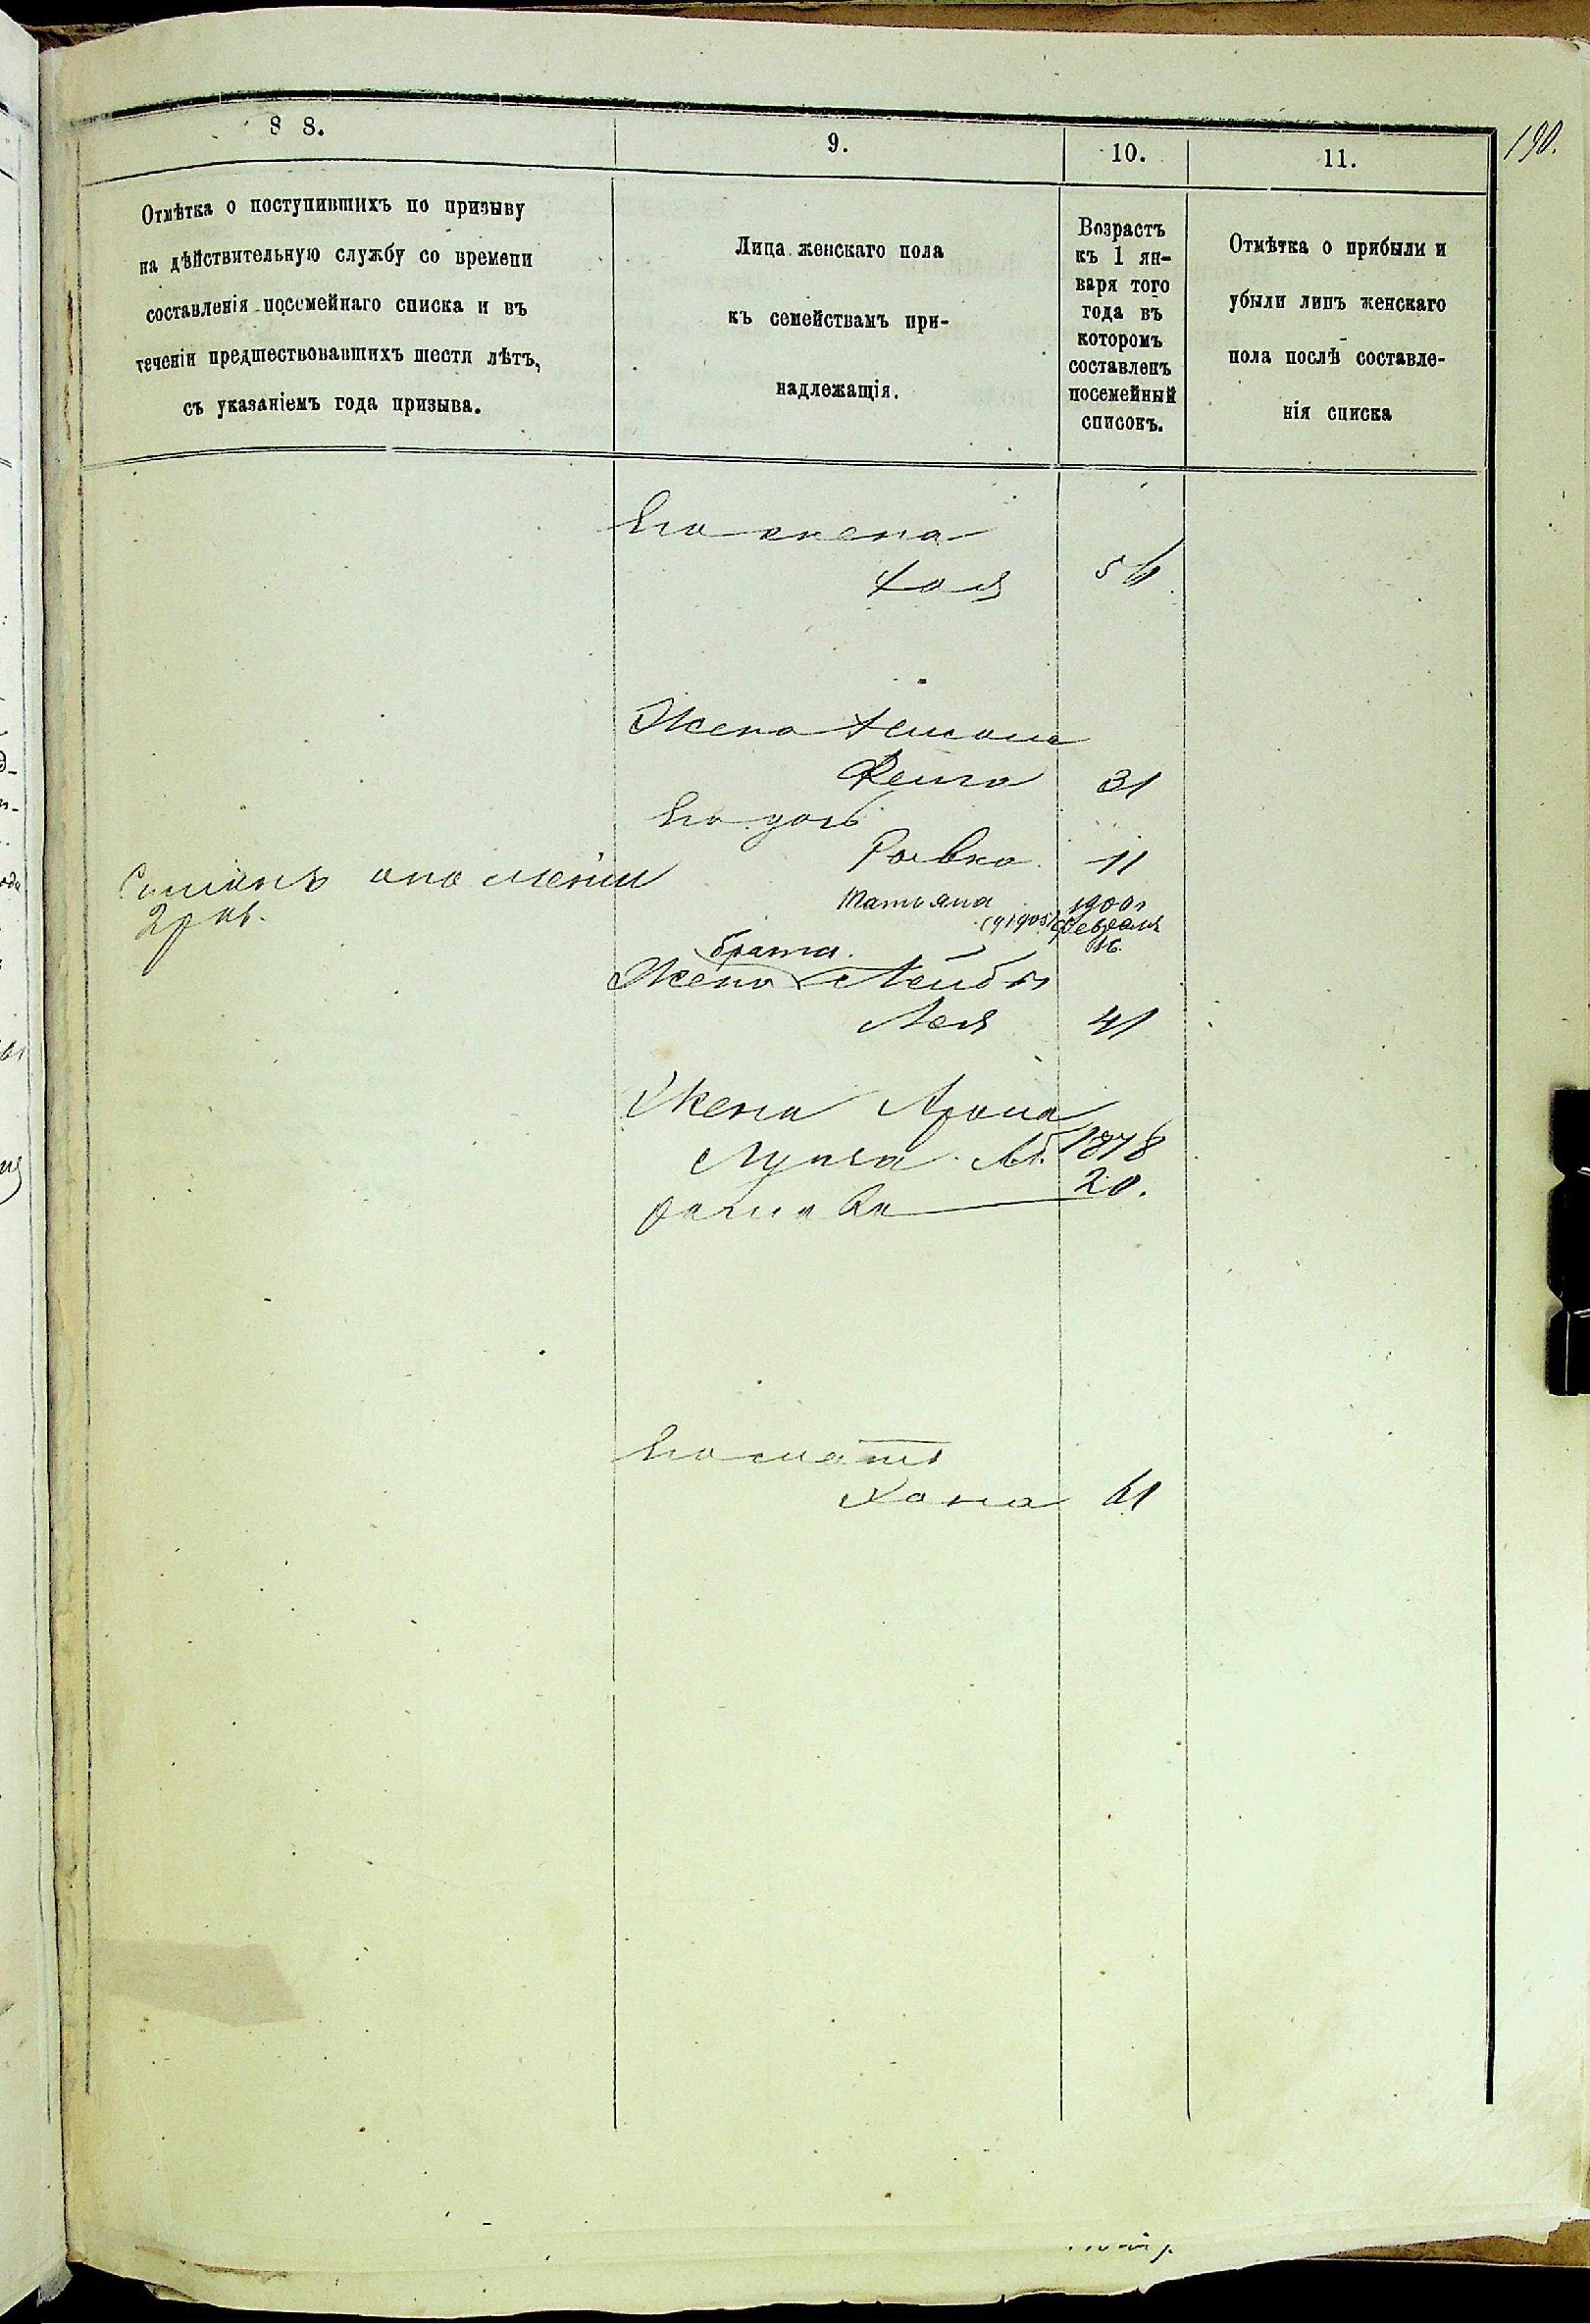 190.
8 8.
9.
10.
11.
Отмѣтка о поступившихъ по призыву
на дѣйствительную службу со времени
составленія посемейнаго списка и въ
теченіи предшествовавшихъ шести лѣтъ,
съ указаніемъ года призыва.
Лица женскаго пола
къ семействамъ при-
надлежащія.
Возрастъ
къ 1 ян-
варя того
года въ
которомъ
составленъ
посемейный
списокъ.
Отмѣтка о прибыли и
убыли лицъ женскаго
пола послѣ составле-
нія списка
Его жена
Хая 56
Жена
31
Его дочь
Ривка 11
Татьяна 1900г
Февраля
16.
2 раз.
брата
Жена Лейбы
Лея 41
Жена Арона
1878
20.
Его мать
Хана 61